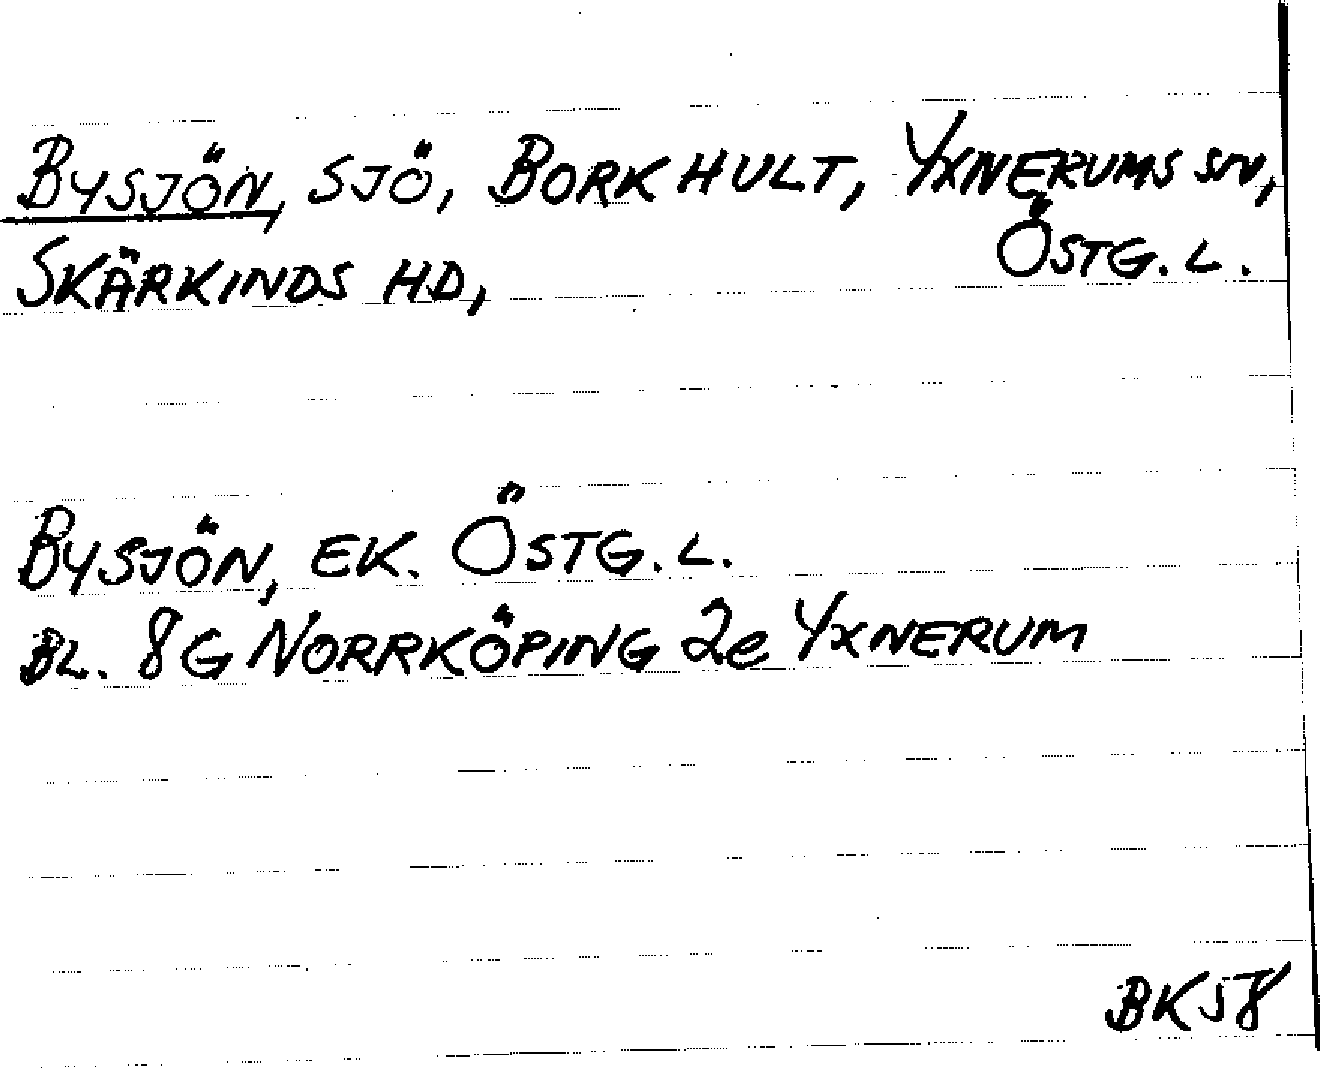 BYSJÖN, SJÖ, BORKHULT, YXNERUMS SN,
SKÄRKINDS HD, ÖSTG. L.
BYSJÖN, EK. ÖSTG. L.
BL. 8G NORRKÖPING 2e YXNERUM
BK58